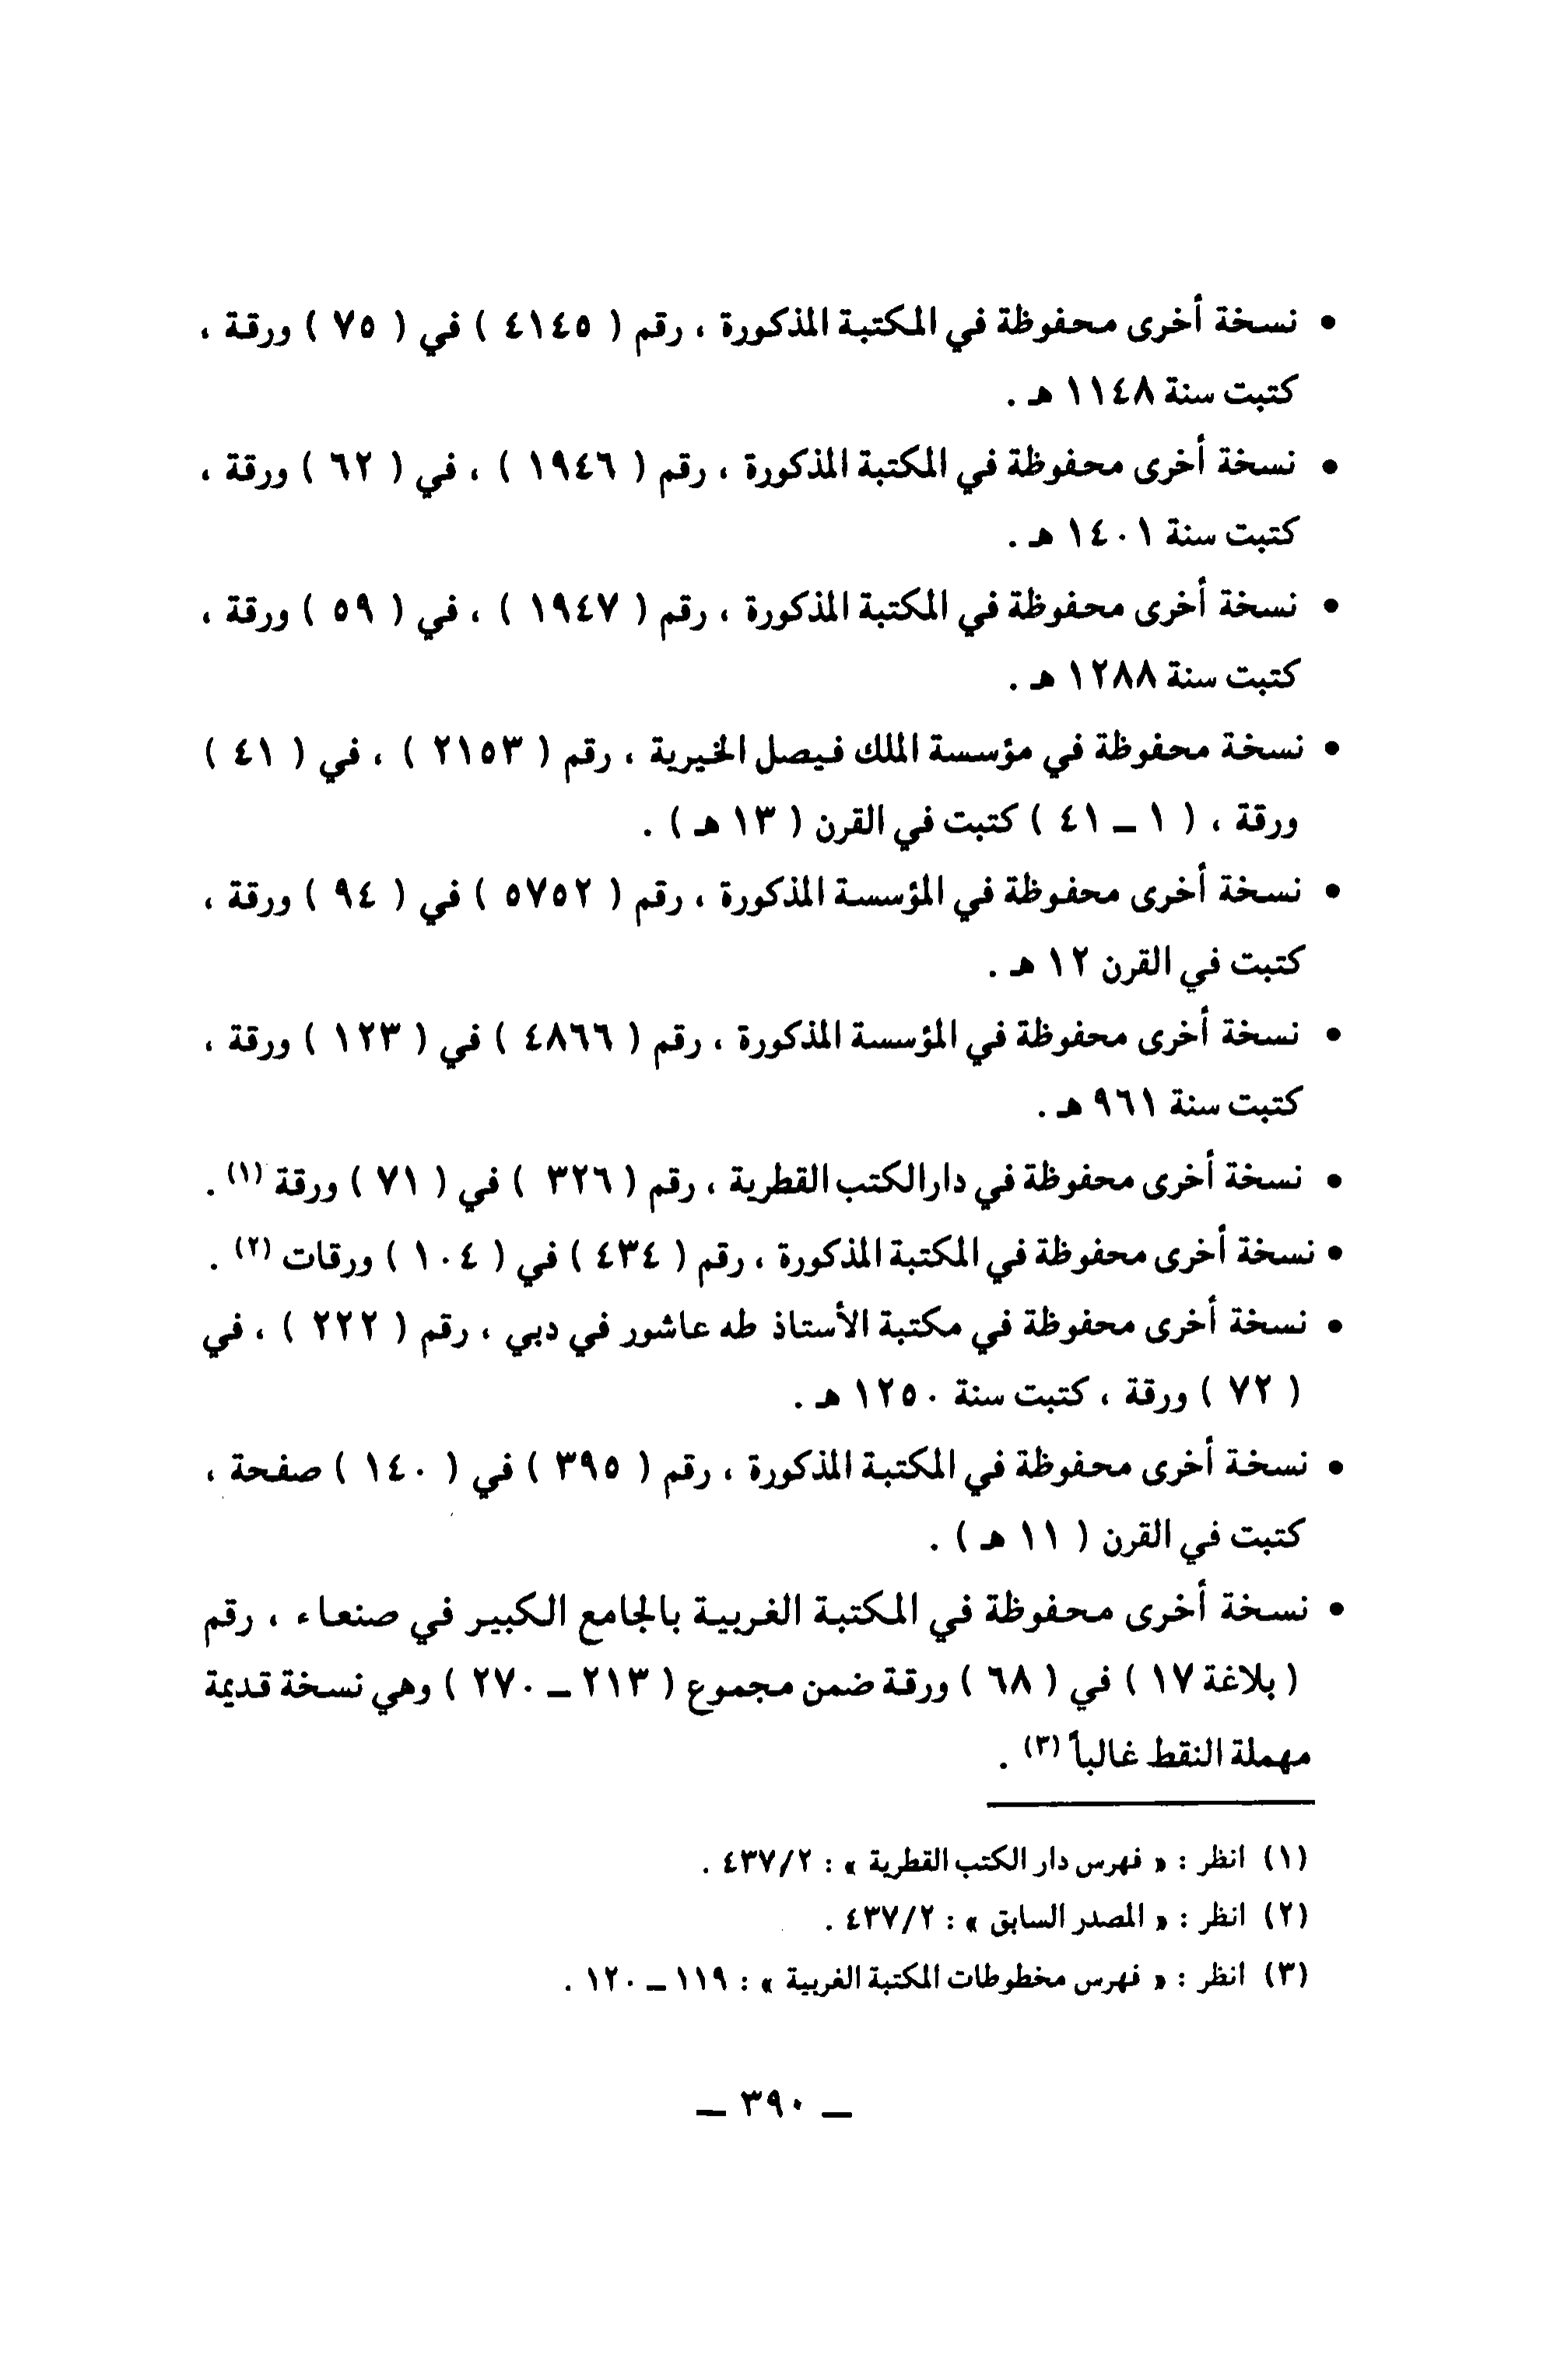 • نسخة أخرى محفوظة في المكتبة المذكورة ، رقم ( ٤١٤٥ ) في ( ٧٥ ) ورقة ،
كتبت سنة ١١٤٨ هـ .
• نسخة أخرى محفوظة في المكتبة المذكورة ، رقم ( ١٩٤٦ ) ، في ( ٦٢ ) ورقة ،
كتبت سنة ١٤٠١ هـ .
• نسخة أخرى محفوظة في المكتبة المذكورة ، رقم ( ١٩٤٧ ) ، في ( ٥٩ ) ورقة ،
كتبت سنة ١٢٨٨ هـ .
• نسخة محفوظة في مؤسسة الملك فيصل الخيرية ، رقم ( ٢١٥٣ ) ، في ( ٤١ )
ورقة ، ( ١ ــ ٤١ ) كتبت في القرن ( ١٣ هـ ) .
• نسخة أخرى محفوظة في المؤسسة المذكورة ، رقم ( ٥٧٥٢ ) في ( ٩٤ ) ورقة ،
كتبت في القرن ١٢ هـ .
• نسخة أخرى محفوظة في المؤسسة المذكورة ، رقم ( ٤٨٦٦ ) في ( ١٢٣ ) ورقة ،
كتبت سنة ٩٦١ هـ .
• نسخة أخرى محفوظة في دارالكتب القطرية ، رقم ( ٣٢٦ ) في ( ٧١ ) ورقة (١) .
• نسخة أخرى محفوظة في المكتبة المذكورة ، رقم ( ٤٣٤ ) في ( ١٠٤ ) ورقات (٢) .
• نسخة أخرى محفوظة في مكتبة الأستاذ طه عاشور في دبي ، رقم ( ٢٢٢ ) ، في
( ٧٢ ) ورقة ، كتبت سنة ١٢٥٠ هـ .
• نسخة أخرى محفوظة في المكتبة المذكورة ، رقم ( ٣٩٥ ) في ( ١٤٠ ) صفحة ،
كتبت في القرن ( ١١ هـ ) .
• نسخة أخرى محفوظة في المكتبة الغربية بالجامع الكبير في صنعاء ، رقم
( بلاغة ١٧ ) في ( ٦٨ ) ورقة ضمن مجموع ( ٢١٣ ــ ٢٧٠ ) وهي نسخة قديمة
مهملة النقط غالباً (٣) .
(١) انظر : « فهرس دار الكتب القطرية » : ٤٣٧/٢ .
(٢) انظر : « المصدر السابق » : ٤٣٧/٢ .
(٣) انظر : « فهرس مخطوطات المكتبة الغربية » : ١١٩ ــ ١٢٠ .
ــ ٣٩٠ ــ